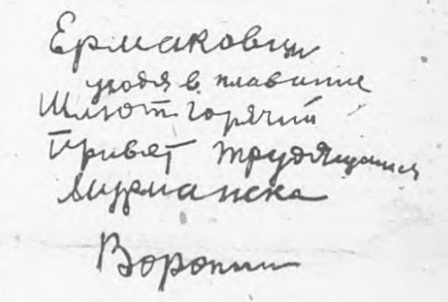 Ермаковцы
уходя в плавание
Шлют горячий
Привет трудящимся
Мурманска
Воронин